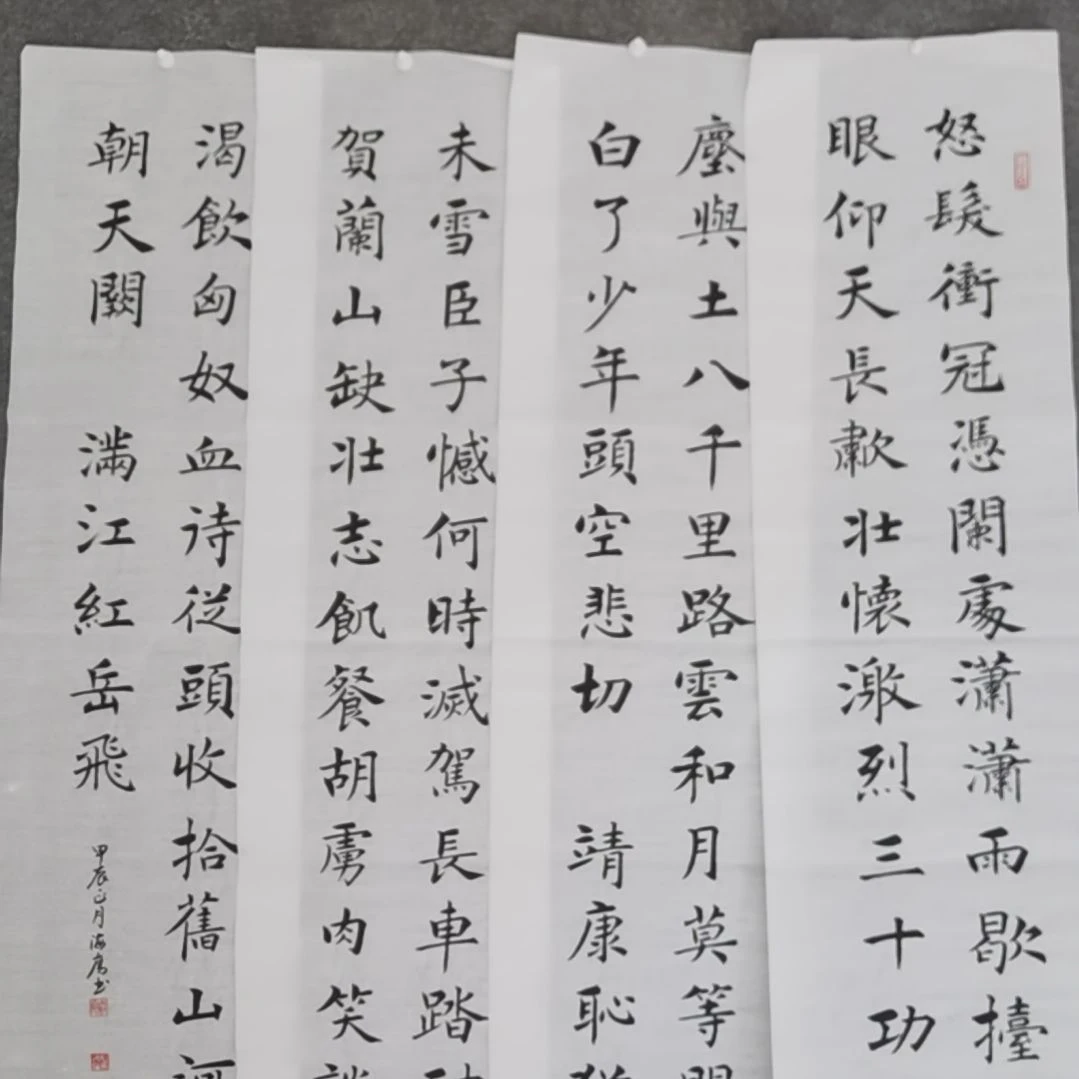 怒髮衝冠憑闌處瀟瀟雨歇擡
眼仰天長歗壯懷激烈三十功
塵與土八千里路雲和月莫等
白了少年頭空悲切 靖康恥
未雪臣子憾何時滅駕長車踏
賀蘭山缺壯志飢餐胡虜肉笑
渴飲匈奴血待従頭收拾舊山
朝天闕 滿江紅岳飛
甲辰正月海